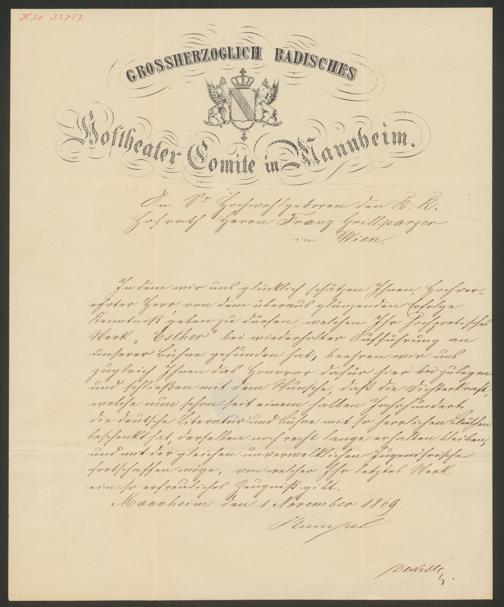 GROSSHERZOGLICH BADISCHES
Hoftheater Comite in Mannheim.
An Sr Hochwohlgeboren den K. K.
Hofrath Herrn Franz Grillparzer
in Wien.
In dem wir uns glücklich schätzen Ihnen, Hochver-
ehrter Herr von dem überaus glänzenden Erfolge
Kenntniß geben zu dürfen, welchen Ihr hochpoetisches
Werk „Esther" bei wiederholter Aufführung an
unserer Bühne gefunden hat, beehren wir uns
zugleich Ihnen das Honorar dafür hier beizulegen
und schließen mit dem Wunsche, daß die Dichterkraft,
welche nun schon seit einem halben Jahrhundert
die deutsche Literatur und Bühne mit so herrlichen Blüthen
beschenkt hat, derselben noch recht lange erhalten bleiben,
und mit der gleichen unverwelklichen Jugendfrische
fortschaffen möge, von welcher Ihr letztes Werk
ein so erfreuliches Zeugniß gibt.
Mannheim den 1 November 1869